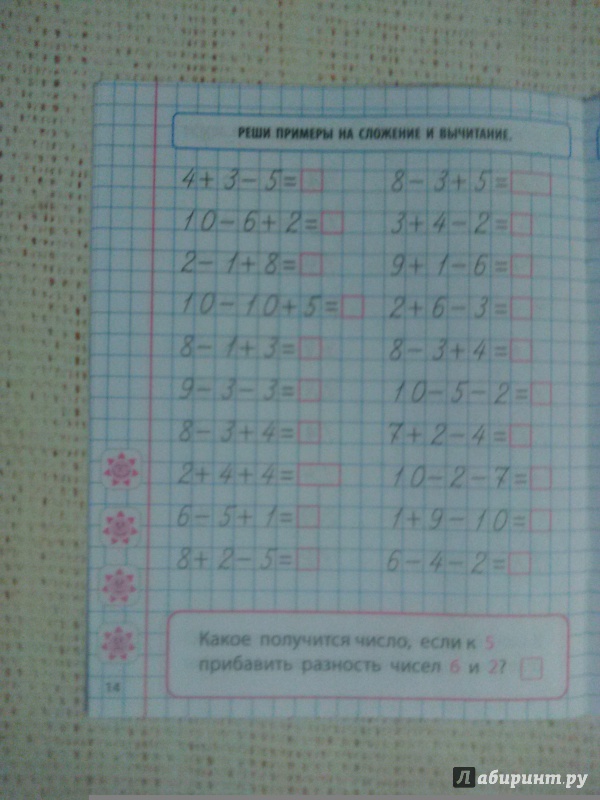 РЕШИ ПРИМЕРЫ НА СЛОЖЕНИЕ И ВЫЧИТАНИЕ.
4+3-5=
10-6+2=
2-1+8=
10-10+5=
8-1+3=
9-3-3=
8-3+4=
2+4+4=
6-5+1=
8+2-5=
8-3+5=
3+4-2=
9+1-6=
2+6-3=
8-3+4=
10-5-2=
7+2-4=
10-2-7=
1+9-10=
6-4-2=
Какое получится число, если к 5
прибавить разность чисел 6 и 2?
14
Лабиринт.ру